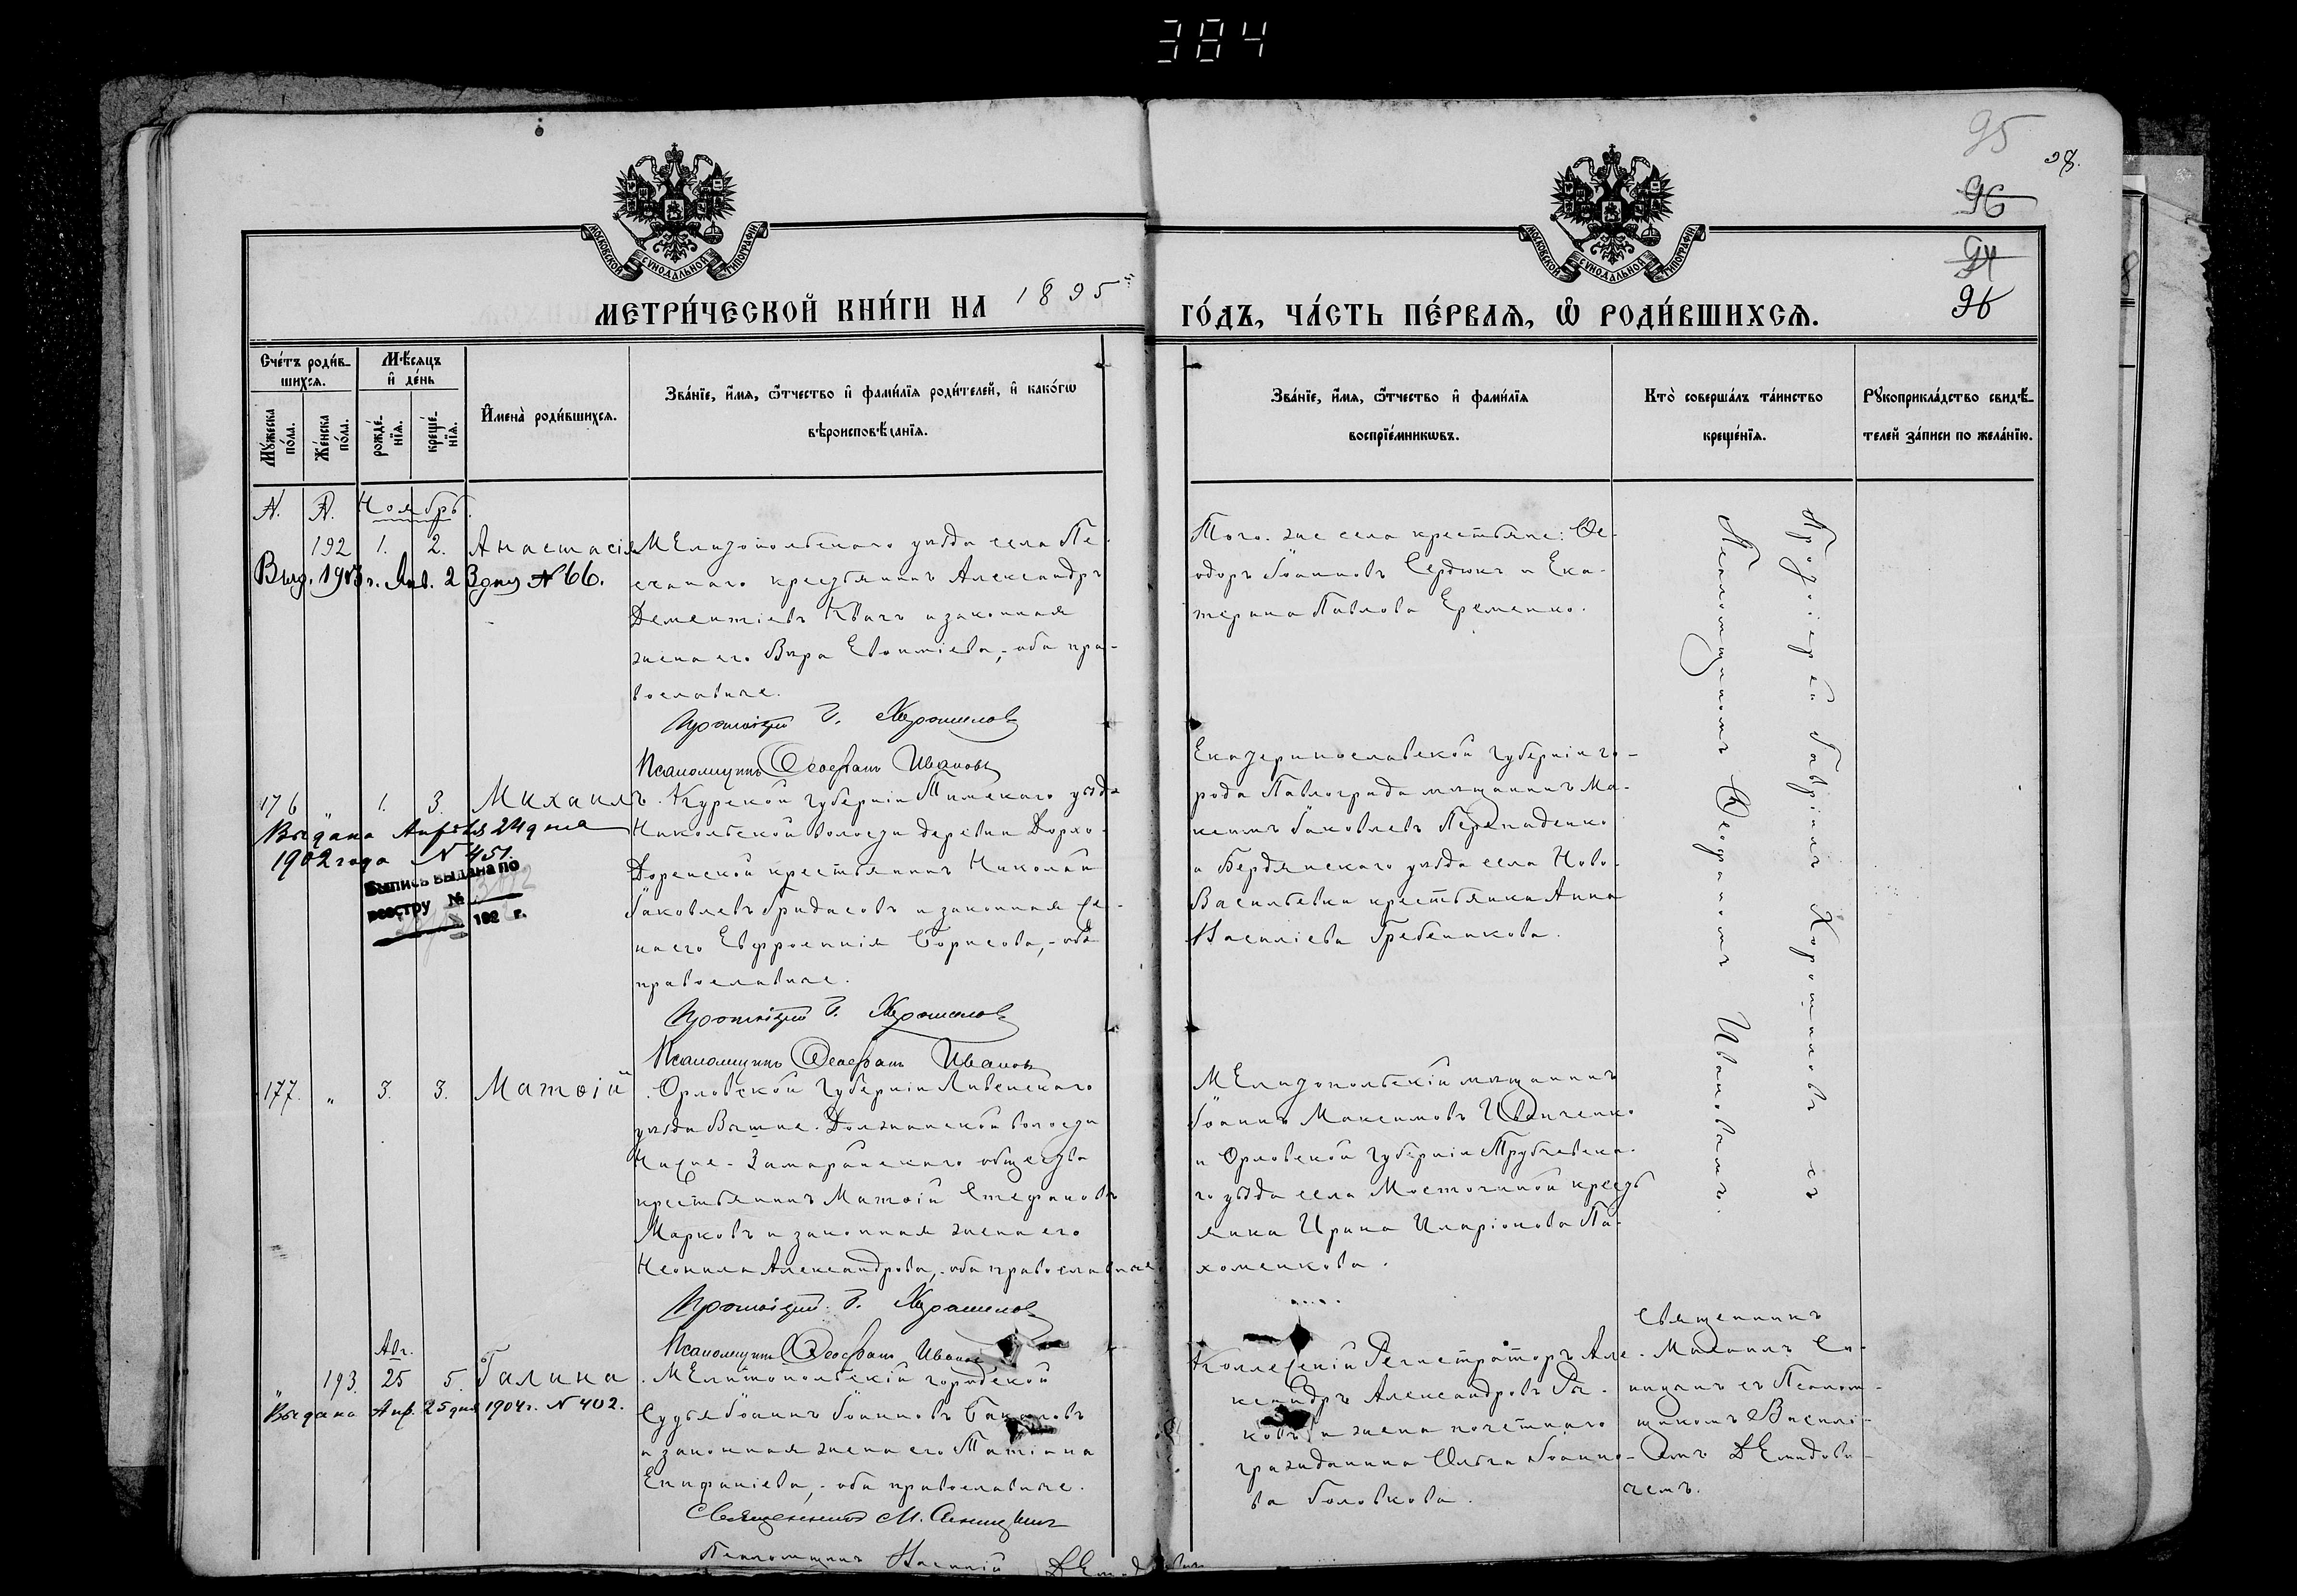 384
95
98.
96
94
96
МОСКОВСКОЙ СѴНОДАЛЬНОЙ ТИПОГРАФІИ
МОСКОВСКОЙ СѴНОДАЛЬНОЙ ТИПОГРАФІИ
МЕТРИ́ЧЕСКОЙ КНИ́ГИ НА 1895 й
ГО́ДЪ, ЧА́СТЬ ПЕ́РВАѦ, Ѡ҆ РОДИ́ВШИХСѦ.
Сче́тъ роди́в-
шихсѧ.
Мѣ́сѧцъ
и҆ де́нь
Мꙋ́жеска
по́ла.
Же́нска
по́ла.
рожде́-
нїѧ.
креще́-
нїѧ.
И҆мена̀ роди́вшихсѧ.
Зва́нїе, и҆́мѧ, ѻ҆́тчество и҆ фами́лїѧ роди́телей, и҆ како́гѡ
вѣроисповѣ́данїѧ.
Зва́нїе, и҆́мѧ, ѻ҆́тчество и҆ фами́лїѧ
воспрїе́мникѡвъ.
Кто̀ соверша́лъ та́инство
креще́нїѧ.
Рꙋкоприкла́дство свидѣ́-
телей за́писи по жела́нїю.
Ноябрь.
192 1. 2. Анастасія
Выд. 1903 г. Янв. 23 дня № 66.
Мелитопольскаго уѣзда села Пе-
счанаго крестьянинъ Александръ
Дементіевъ Квачъ и законная
жена его Вѣра Евѳиміева, - оба пра-
вославные.
Протоіерей Г. Хорошиловъ
Псаломщикъ Ѳеофанъ Ивановъ
Того-же села крестьяне: Ѳе-
одоръ Іоанновъ Сердюкъ и Ека-
терина Павлова Еременко.
Протоіерей Гавріилъ Хорошиловъ съ
Псаломщикомъ Ѳеофаномъ Ивановымъ.
176 " 1. 3. Михаилъ.
Выдана Апрѣля 24 дня
1902 года № 451.
Выпись выдана по
реестру №
192 г.
Курской губерніи Тимскаго уѣзда
Никольской волости деревни
крестьянинъ Николай
Іаковлевъ Гридасовъ и законная же-
на его Евфросинія Борисова, - оба
православные.
Протоіерей Г. Хорошиловъ
Псаломщикъ Ѳеофанъ Ивановъ
Екатеринославской губерніи го-
рода Павлограда мѣщанинъ Ма-
ксимъ Іаковлевъ
и Бердянскаго уѣзда села Ново-
Васильевки крестьянка Анна
Василіева Гребенникова.
177. " 3. 3. Матѳій
Орловской губерніи Ливенскаго
уѣзда Вышне-Должанской волости
общества
крестьянинъ Матѳій Стефановъ
Марковъ и законная жена его
Неонила Александрова, - оба православные
Протоіерей Г. Хорошиловъ
Псаломщикъ Ѳеофанъ Ивановъ
Мелитопольскій мѣщанинъ
Іоаннъ Максимовъ Иванченко
и Орловской губерніи Трубчевска-
го уѣзда села крестья-
янка Ирина Иларіонова Па-
хоменкова.
Авг.
" 193. 25 5. Галина
Выдана Апр. 25 дня 1904 г. № 402.
Мелитопольскій городской
Судья Іоаннъ Іоанновъ
и законная жена его Татіана
Епифаніева, - оба православные.
Священникъ М.
Псаломщикъ Василій
Коллежскій Регистраторъ Але-
ксандръ Александровъ
и жена почетнаго
гражданина Ольга Іоанно-
ва Головкова.
Священникъ
Михаилъ
съ Псалом-
щикомъ Василі-
емъ Демидови-
чемъ.